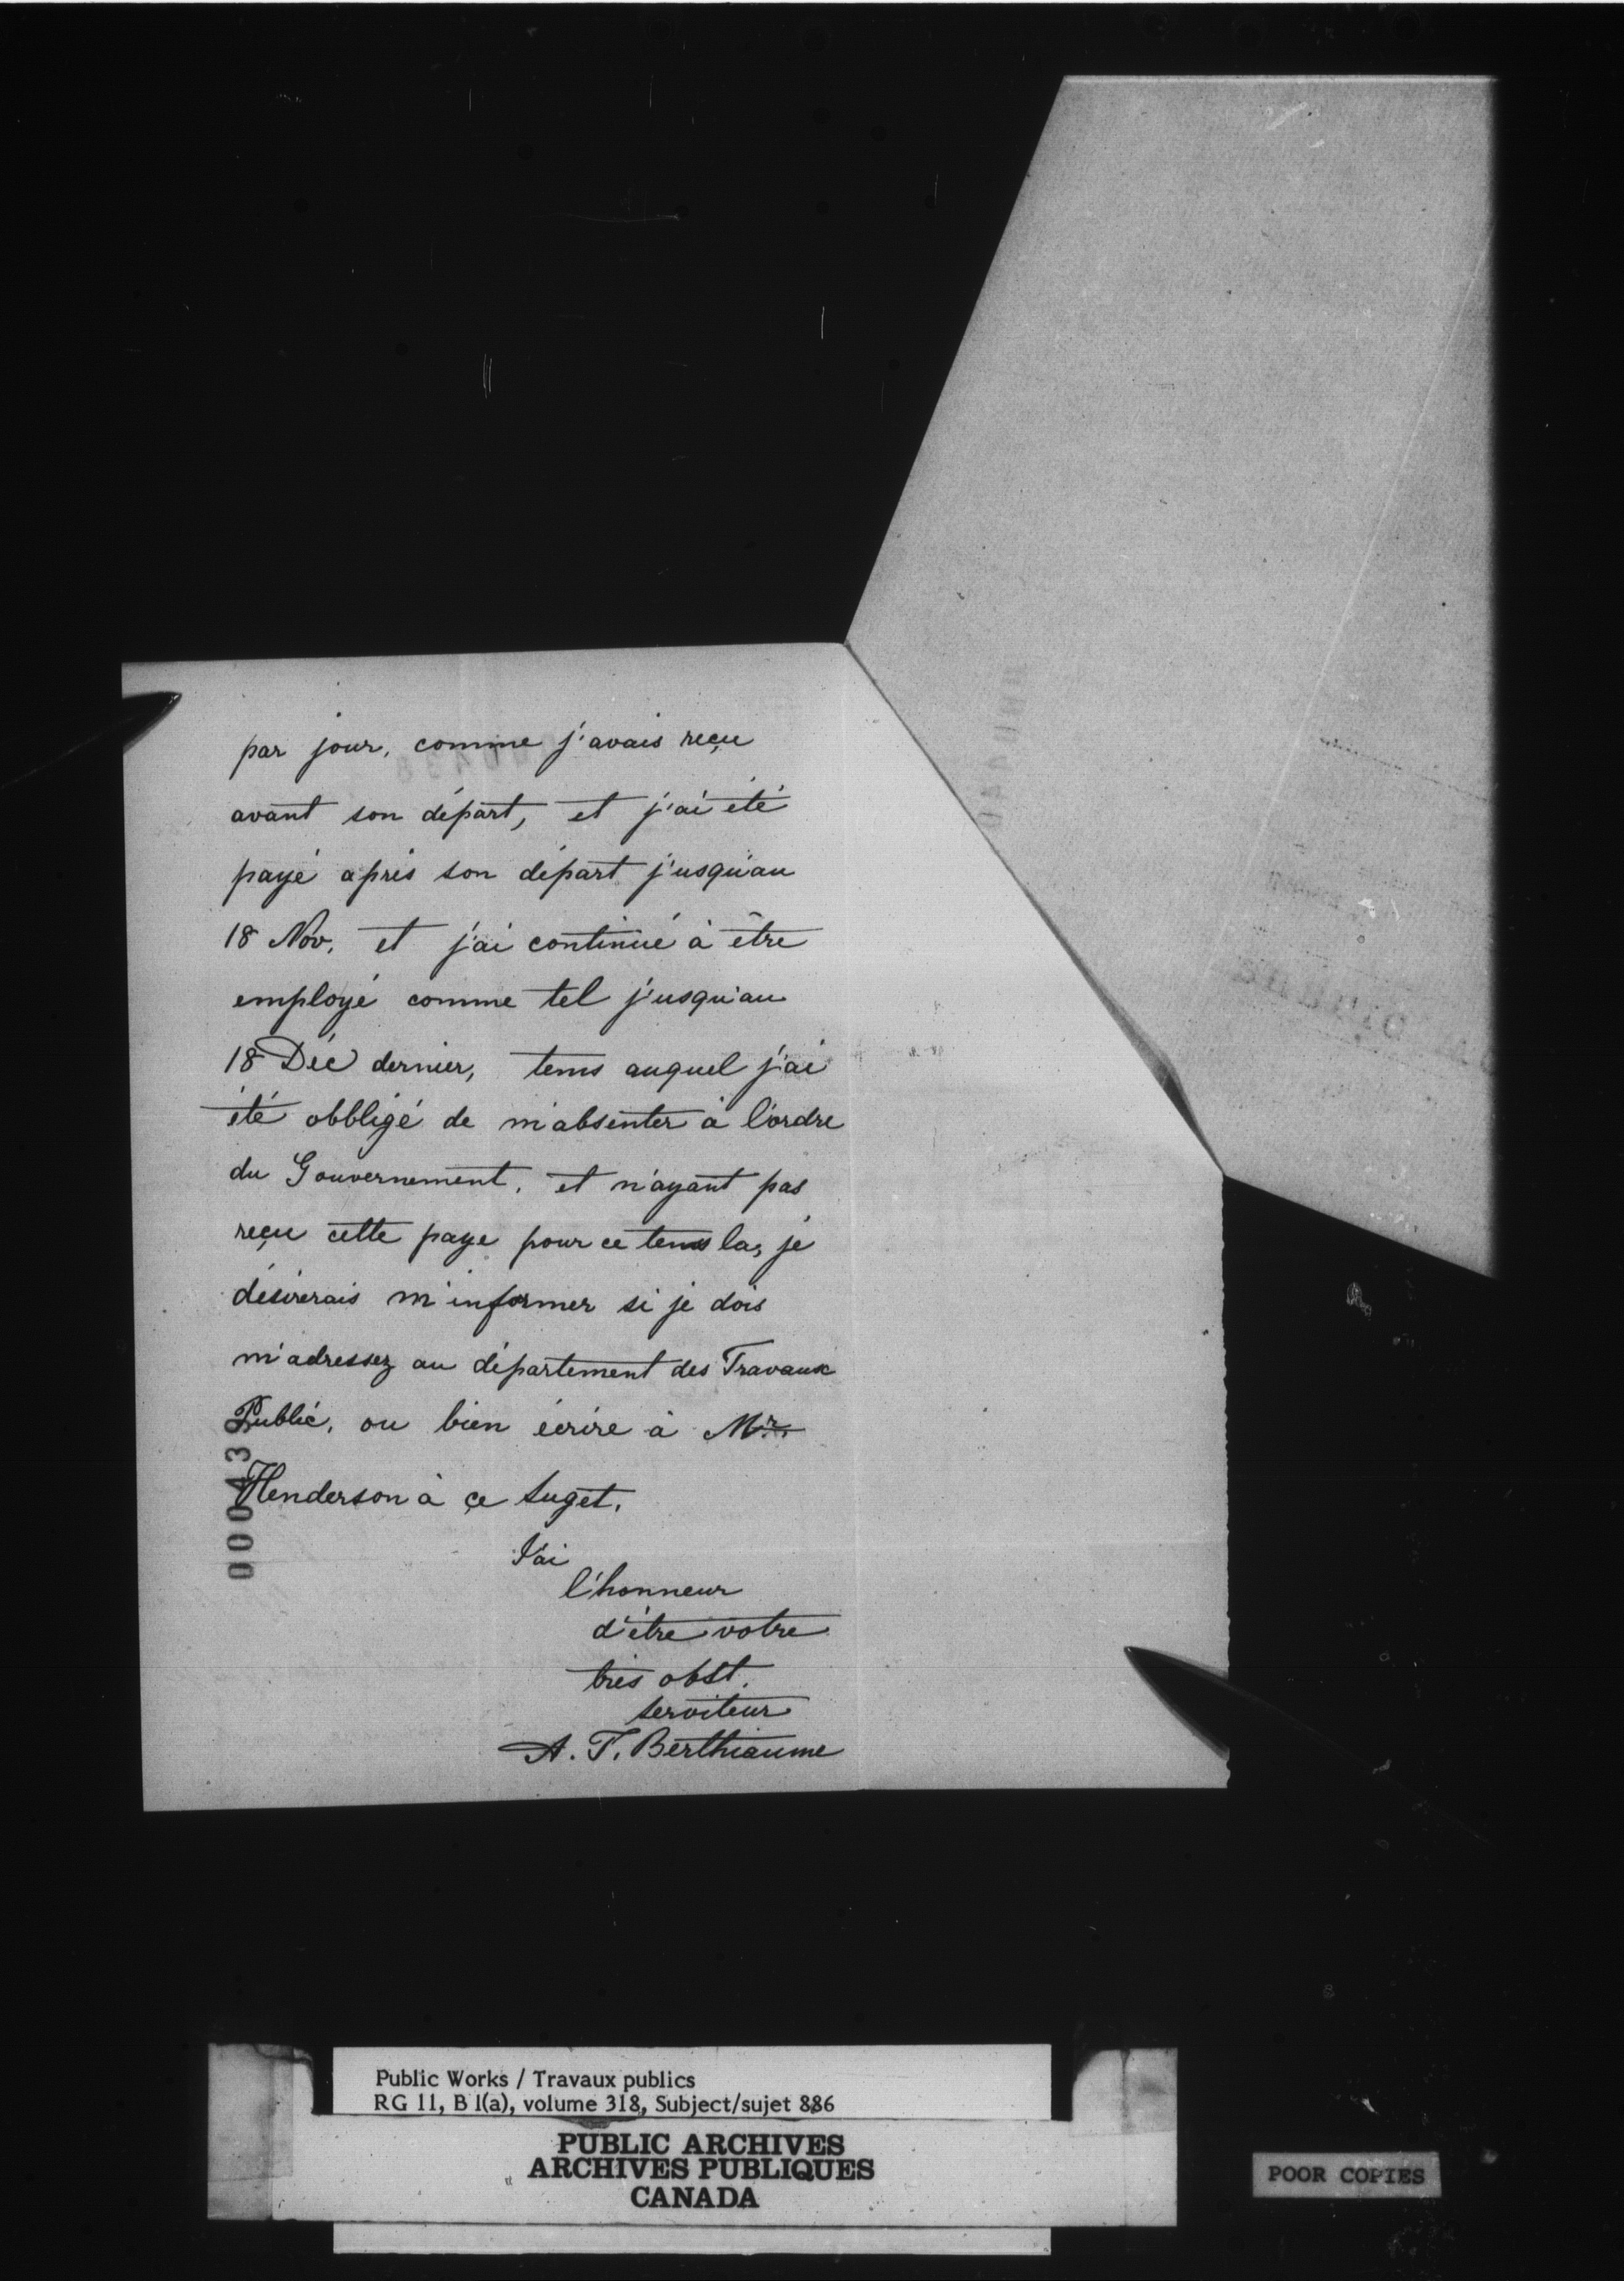 par jour, comme j'avais reçu
avant son départ, et j'ai été
payé après son départ j'usqu'au
18 Nov. et j'ai continué à être
employé comme tel j'usqu'au
18 Déc dernier, tems auquel j'ai
été obbligé de m'absenter à l'ordre
du Gouvernement, et n'ayant pas
reçu cette paye pour ce tems la, je
désirerais m'informer si je dois
m'adressez au département des Travaux
Public, ou bien écrire à Mr.
Henderson à çe suget.
J'ai
l'honneur
d'être votre
très obst.
serviteur
A. T. Berthiaume
Public Works / Travaux publics
RG 11, B 1(a), volume 318, Subject/sujet 886
PUBLIC ARCHIVES
ARCHIVES PUBLIQUES
CANADA
POOR COPIES